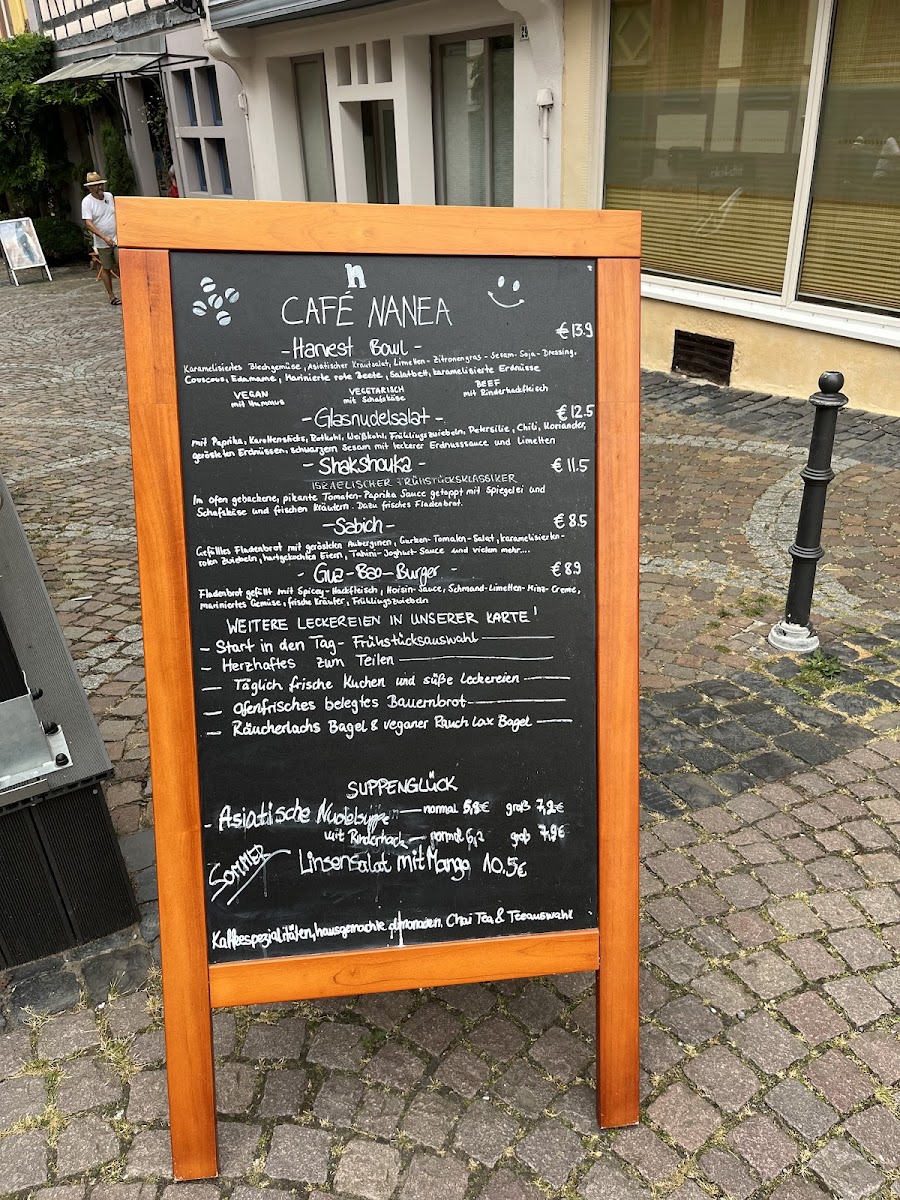 n
CAFÉ NANEA
- Harvest Bowl - €13.9
Karamelisiertes Blechgemüse, Asiatischer Krautsalat, Limetten-Zitronengras-Sesam-Soja-Dressing,
Couscous, Edamame, Marinierte rote Beete, Salatbett, karamelisierte Erdnüsse
VEGAN VEGETARISCH BEEF
mit Hummus mit Schafskäse mit Rinderhackfleisch
- Glasnudelsalat - €12.5
mit Paprika, Karottensticks, Rotkohl, Weißkohl, Frühlingszwiebeln, Petersilie, Chili, Koriander,
gerösteten Erdnüssen, schwarzem Sesam mit leckerer Erdnusssauce und Limetten
- Shakshouka - €11.5
ISRAELISCHER FRÜHSTÜCKSKLASSIKER
Im ofen gebackene, pikante Tomaten-Paprika Sauce getoppt mit Spiegelei und
Schafskäse und frischen Kräutern. Dazu frisches Fladenbrot.
- Sabich - €8.5
Gefülltes Fladenbrot mit gerösteten Auberginen, Gurken-Tomaten-Salat, karamelisierten-
roten Zwiebeln, hartgekochten Eiern, Tahini-Joghurt-Sauce und vielem mehr....
- Gua-Bao-Burger - €8.9
Fladenbrot gefüllt mit Spicey-Hackfleisch, Hoisin-Sauce, Schmand-Limetten-Minz-Creme,
Mariniertes Gemüse, frische Kräuter, Frühlingszwiebeln
WEITERE LECKEREIEN IN UNSERER KARTE!
- Start in den Tag - Frühstücksauswahl
- Herzhaftes zum Teilen
- Täglich frische Kuchen und süße Leckereien
- Ofenfrisches belegtes Bauernbrot
- Räucherlachs Bagel & veganer Rauch Lax Bagel
SUPPENGLÜCK
- Asiatische Nudelsuppe - normal 5,8€ groß 7,2€
mit Rinderhack - normal 6,2 groß 7,9€
SOMMER Linsensalat mit Mango 10.5€
Kaffeespezialitäten, hausgemachte Limonaden, Chai Tea & Teeauswahl